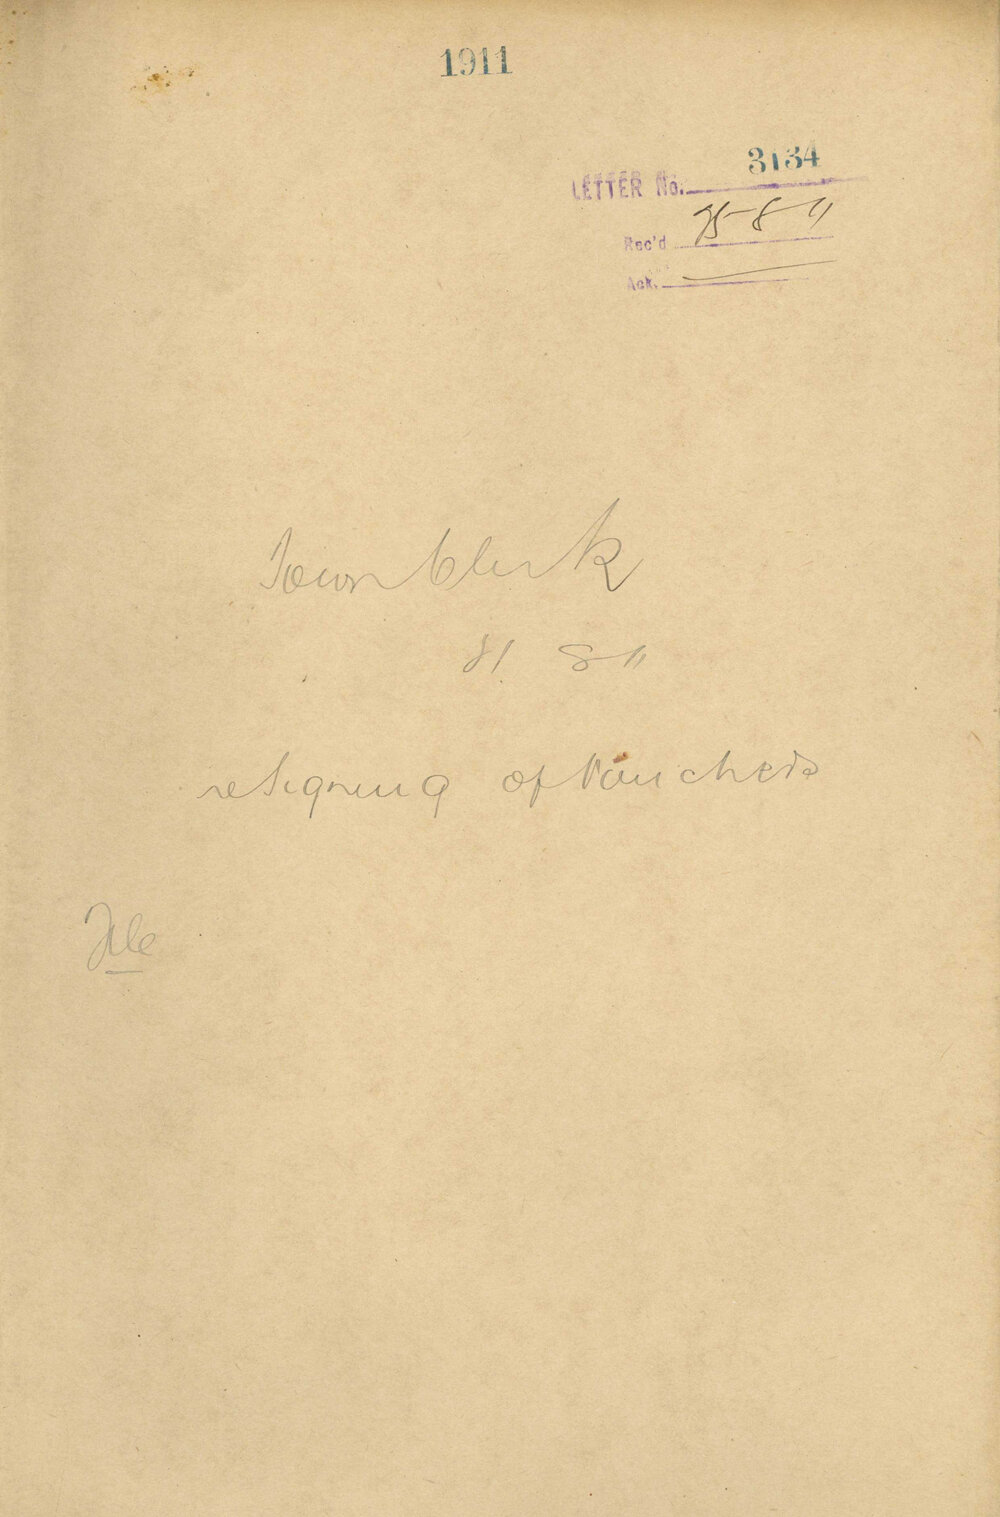 1911
LETTER No. 3134
Rec'd 25-8-11
Ack.
Town Clerk
21. 8-11
re Signing of Vouchers
File